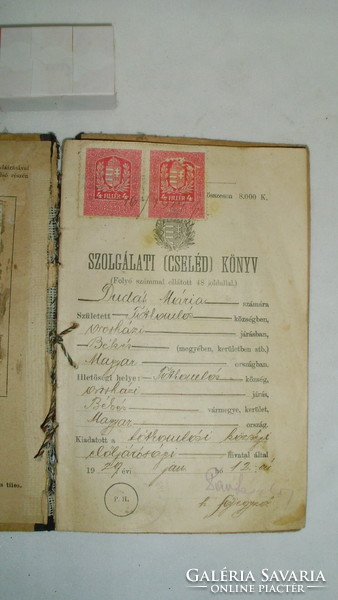 4 FILLÉR 4 4 FILLÉR 4
összesen 8.000 K.
SZOLGÁLATI (CSELÉD) KÖNYV
(Folyó számmal ellátott 46 oldallal.)
Dudás Mária számára
Született Tótkomlós községben,
orosházi járásban,
Békés (megyében, kerületben stb.)
Magyar országban.
Illetőségi helye: Tótkomlós község,
orosházi járás,
Békés vármegye, kerület,
Magyar ország.
Kiadatott a tótkomlósi község
elöljárósága hivatal által
1929 évi jan 12 én
P. H.
GALÉRIA SAVARIA
online piactér - www.galeriasavaria.hu